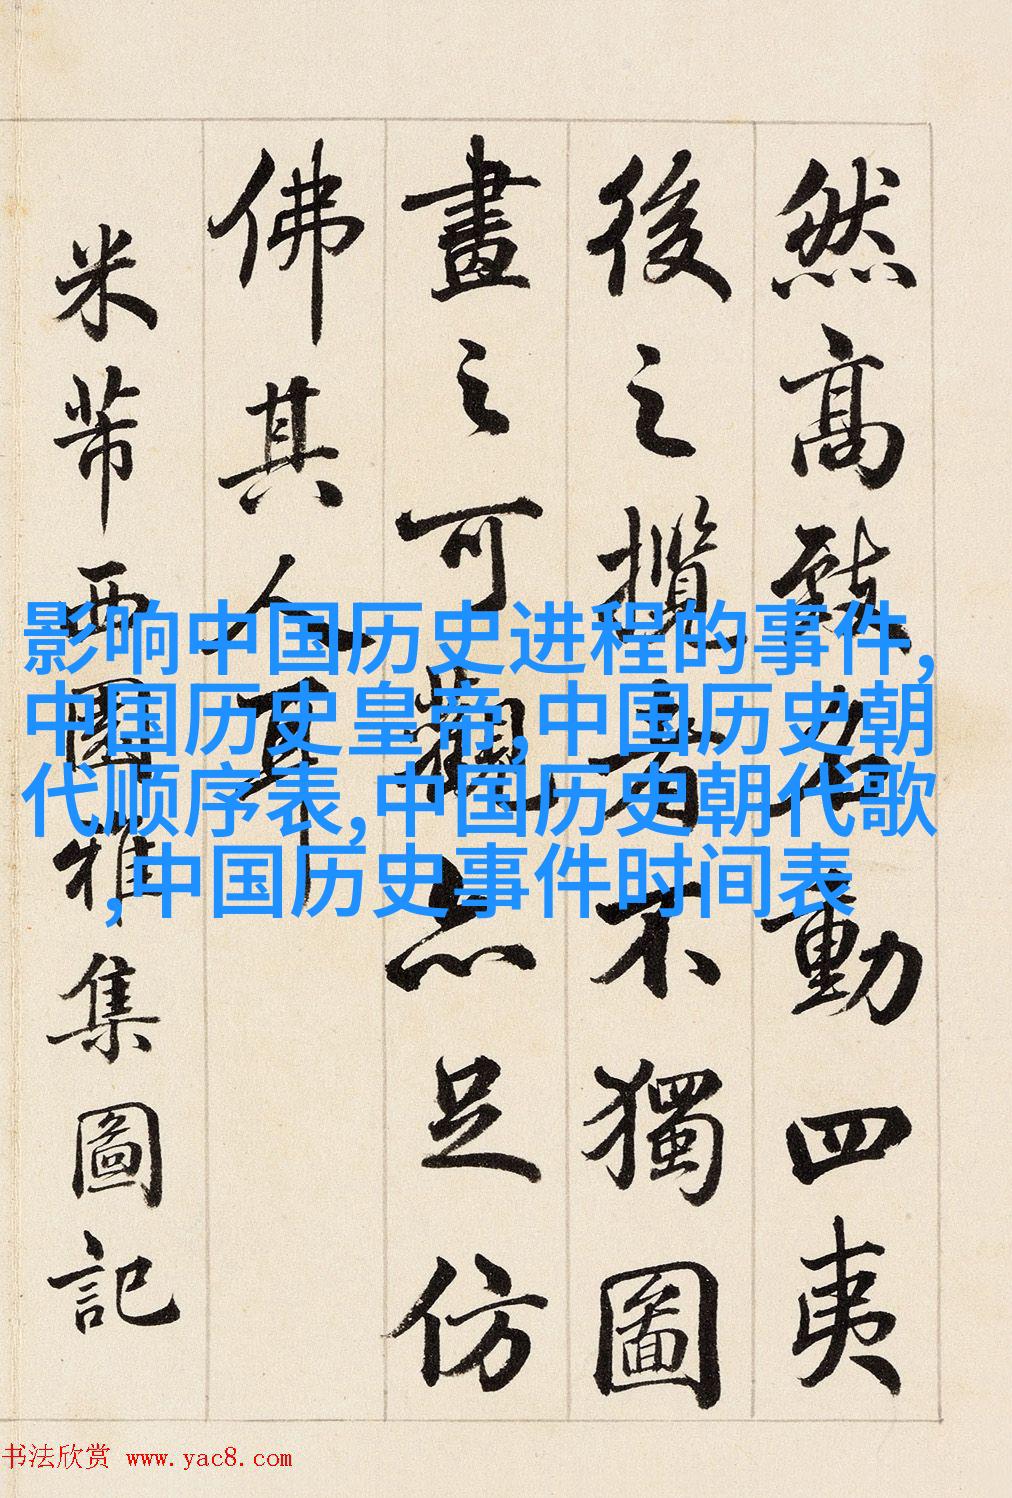 然高致名動四夷
後之攬者不獨圖
畫之可觀亦足仿
佛其人耳
米芾西園雅集圖記
影响中国历史进程的事件,
中国历史皇帝,中国历史朝
代顺序表,中国历史朝代歌
,中国历史事件时间表
书法欣赏 www.yac8.com